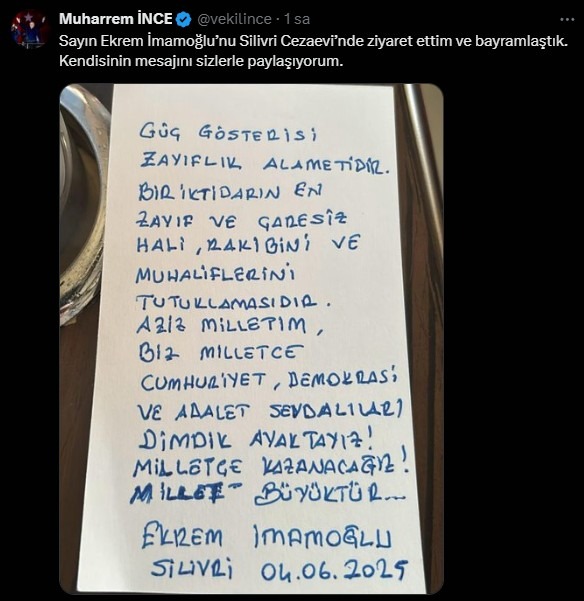 Muharrem İNCE @vekilince · 1 sa
Sayın Ekrem İmamoğlu'nu Silivri Cezaevi'nde ziyaret ettim ve bayramlaştık.
Kendisinin mesajını sizlerle paylaşıyorum.
GÜÇ GÖSTERİSİ
ZAYIFLIK ALAMETİDİR.
BİR İKTİDARIN EN
ZAYIF VE ÇARESİZ
HALİ, RAKİBİNİ VE
MUHALİFLERİNİ
TUTUKLAMASIDIR.
AZİZ MİLLETİM,
BİZ MİLLETÇE
CUMHURİYET, DEMOKRASİ
VE ADALET SEVDALILARI
DİMDİK AYAKTAYIZ!
MİLLETÇE KAZANACAĞIZ!
MİLLET BÜYÜKTÜR...
EKREM İMAMOĞLU
SİLİVRİ 04.06.2025